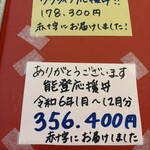 178,300円
赤十字にお届けしました!
ありがとうございます
能登応援丼
令和6年1月〜12月分
356,400円
赤十字にお届けしました!